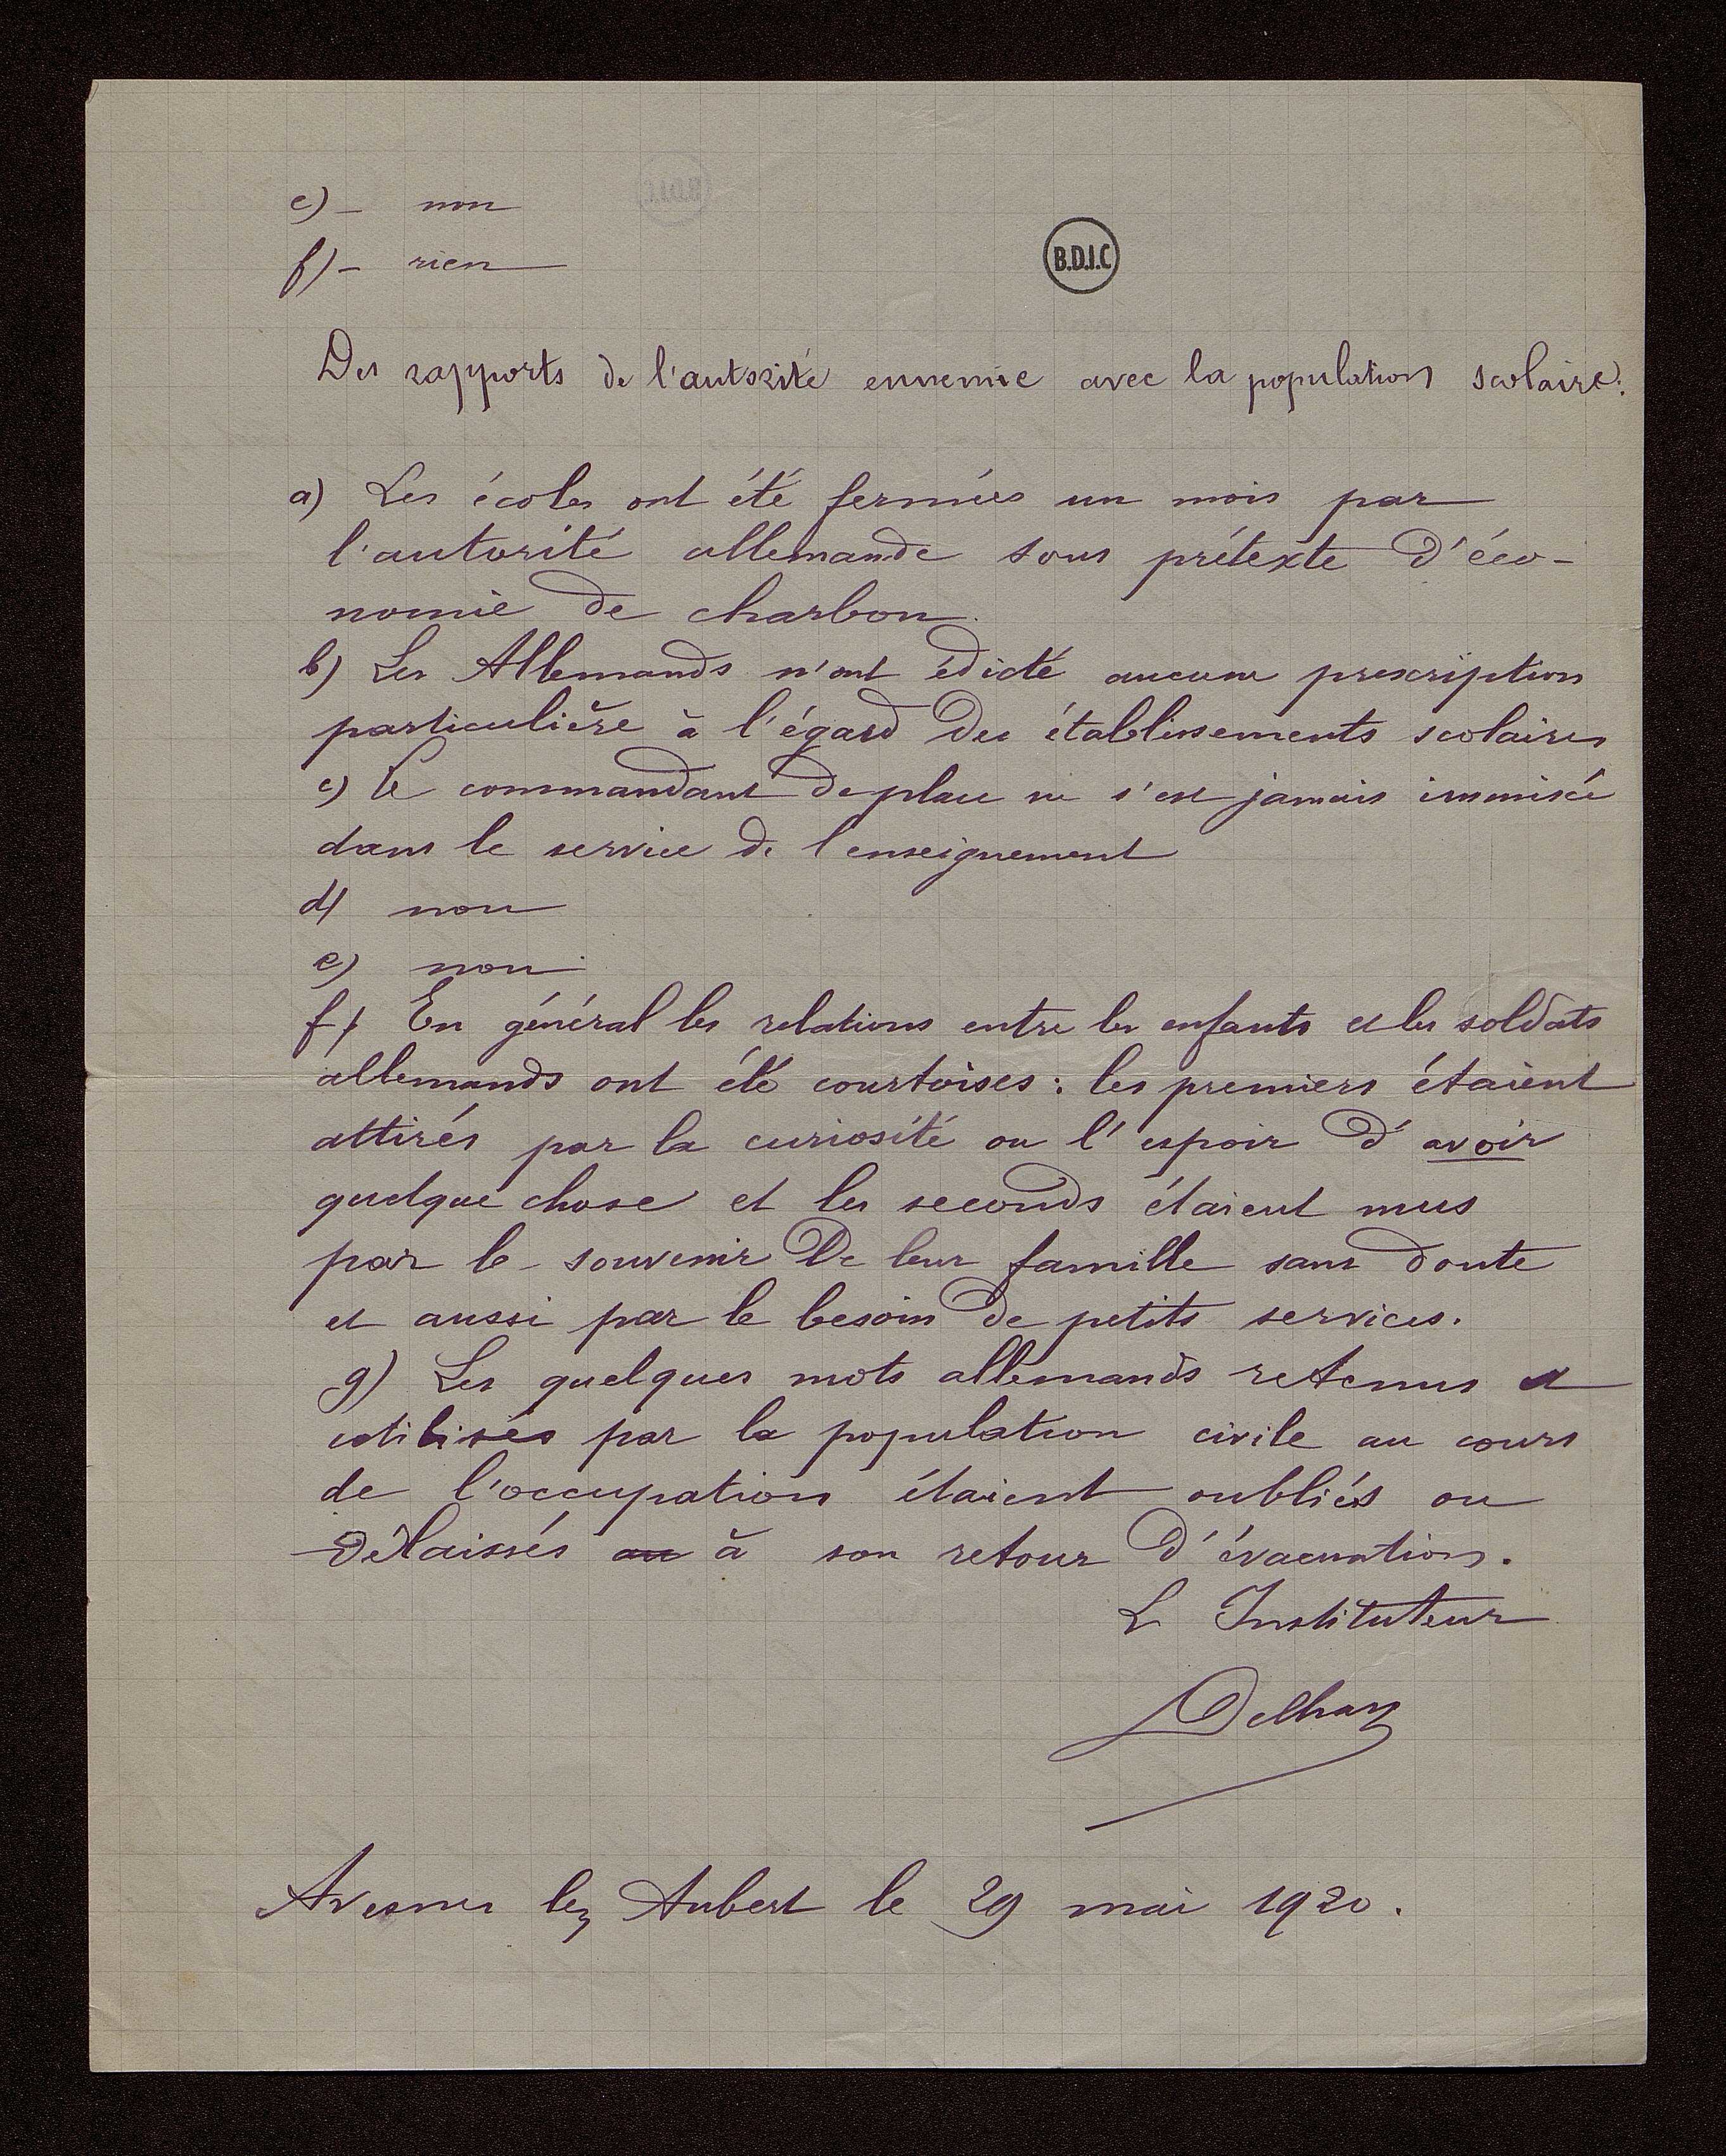 e) - non
f) - rien
B.D.I.C
Des rapports de l'autorité ennemie avec la population scolaire:
a) Les écoles ont été fermées un mois par
l'autorité allemande sous prétexte d'éco-
nomie de charbon.
b) Les Allemands n'ont édicté aucune prescription
particulière à l'égard des établissements scolaires
c) Le commandant de place ne s'est jamais immiscé
dans le service de l'enseignement
d) non
e) non
f) En général les relations entre les enfants et les soldats
allemands ont été courtoises : les premiers étaient
attirés par la curiosité ou l'espoir d'avoir
quelque chose et les seconds étaient mus
par le souvenir de leur famille sans doute
et aussi par le besoin de petits services.
g) Les quelques mots allemands retenus et
utilisés par la population civile au cours
de l'occupation étaient oubliés ou
délaissés au à son retour d'évacuation.
L Instituteur
Avesnes lez Aubert le 29 mai 1920.